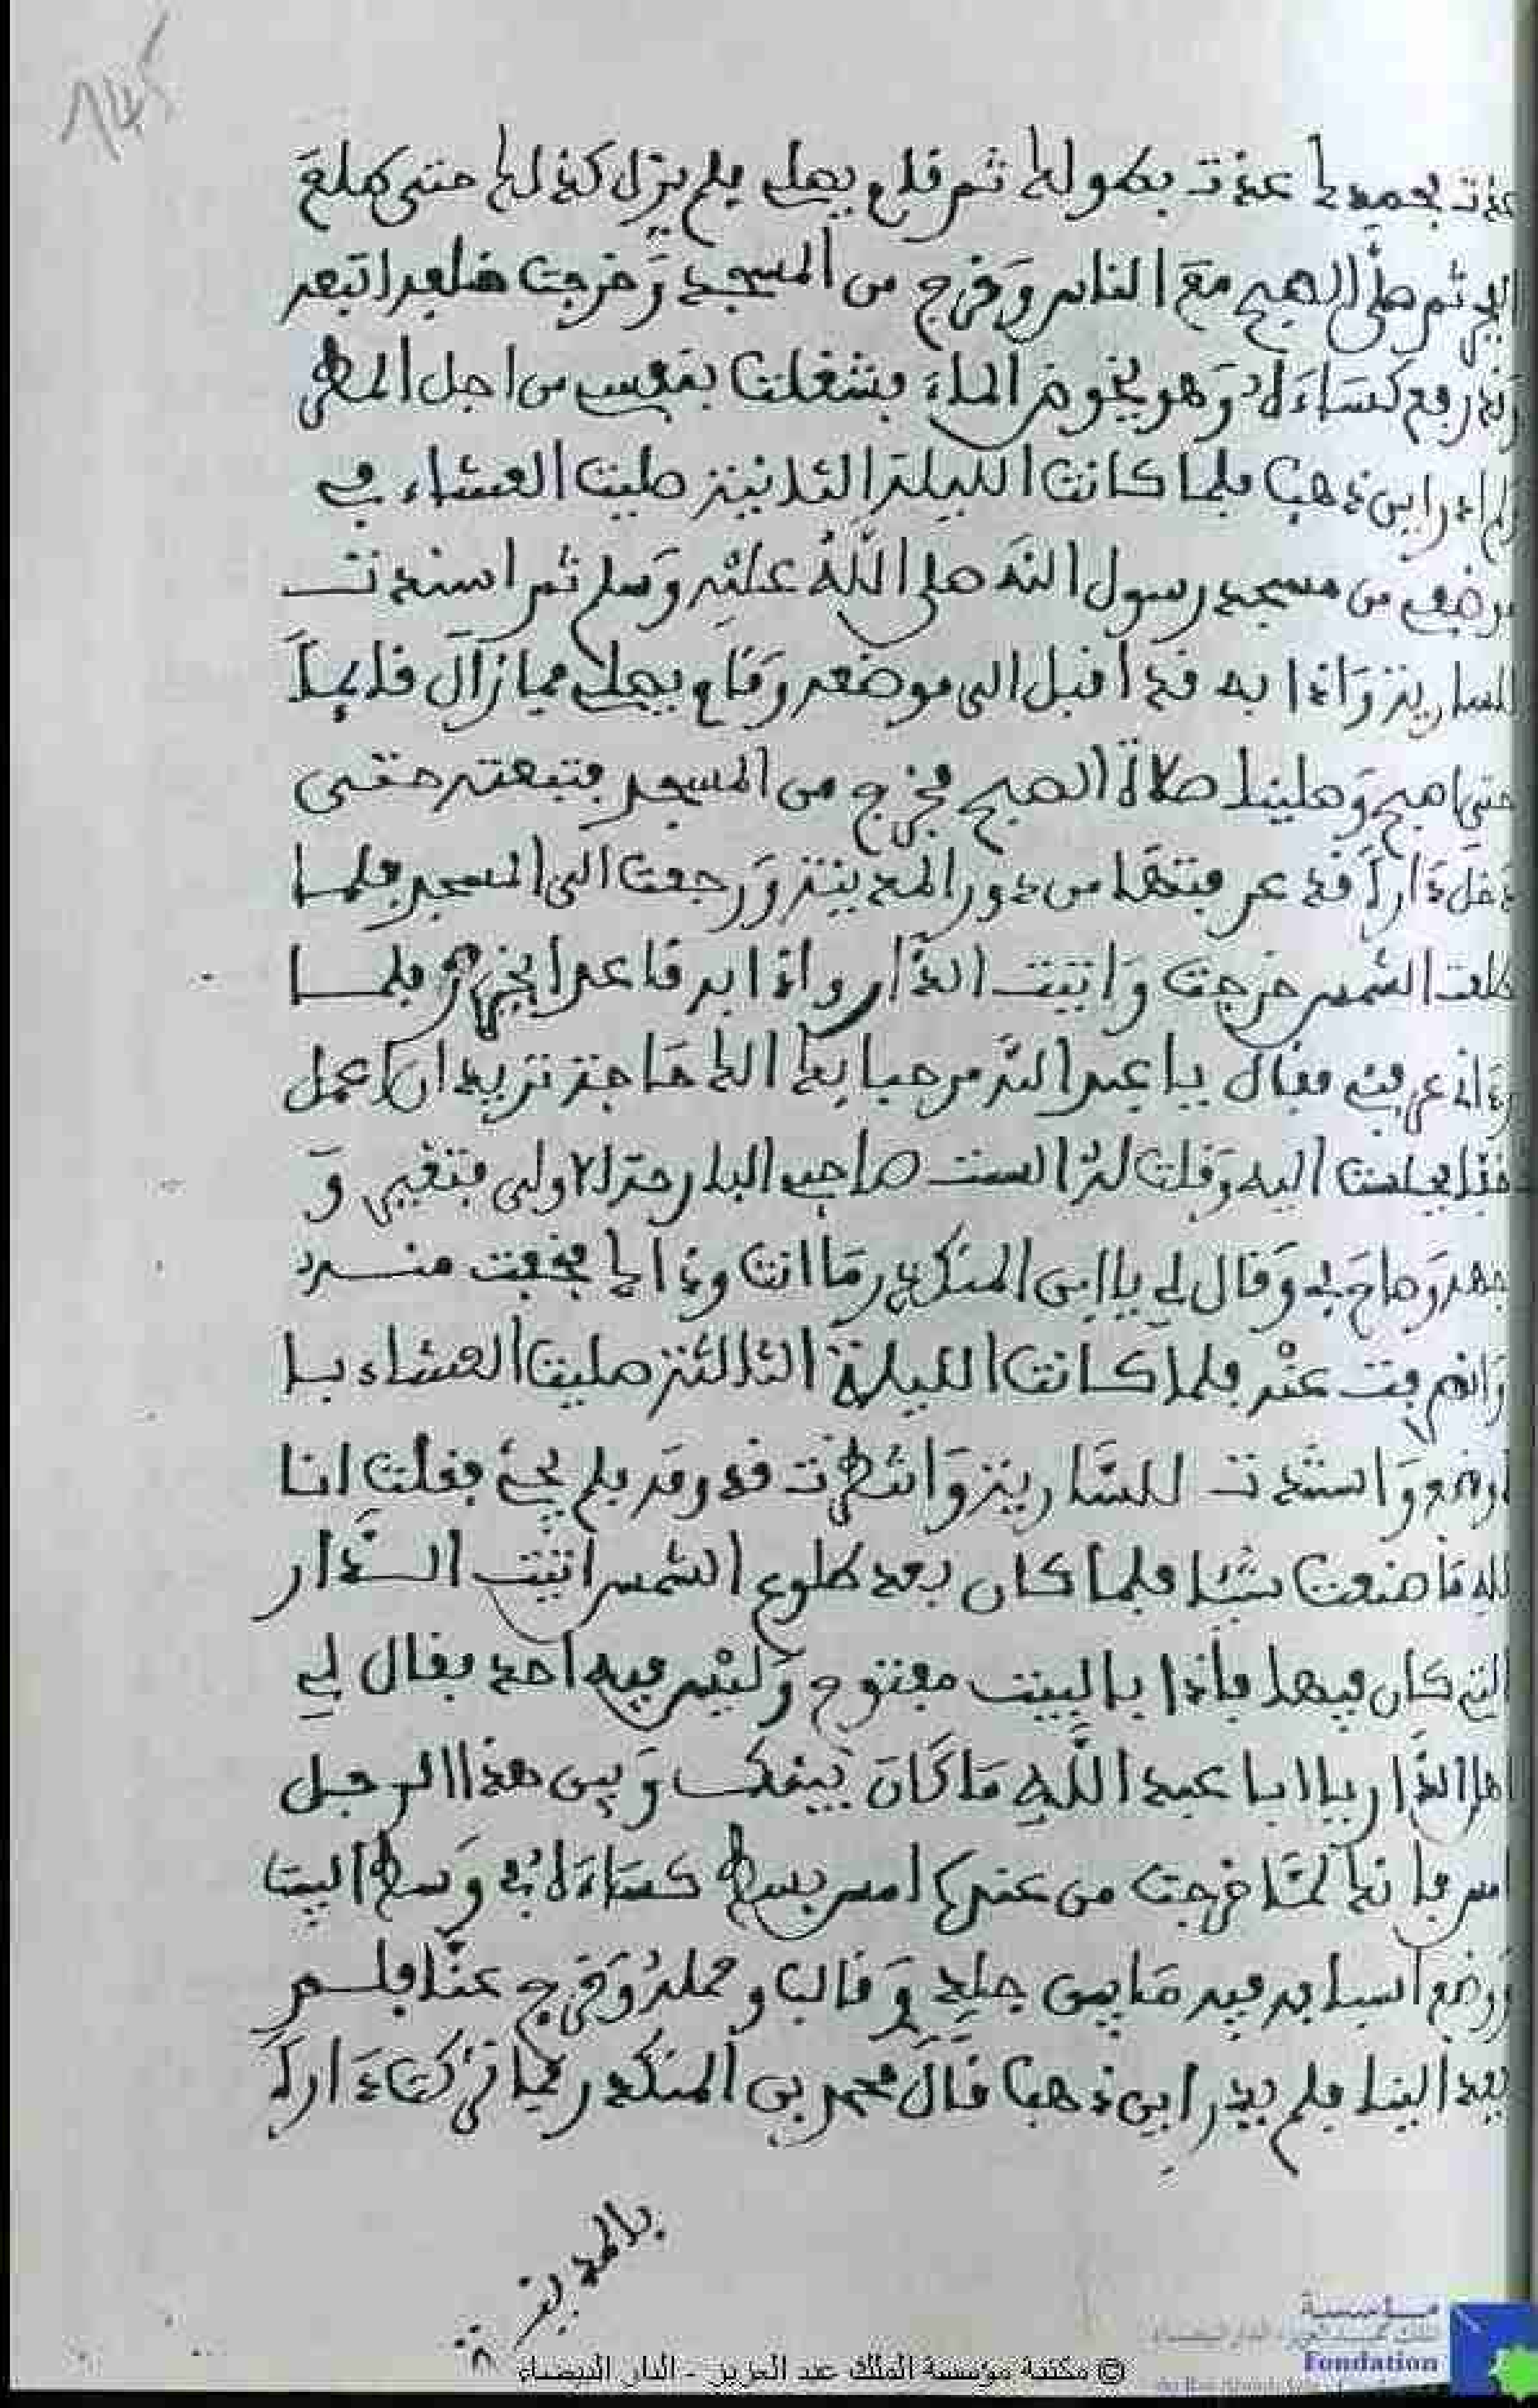 عذت بحمدك عذت بطولك ثم قام يصلي فلم يزل كذلك حتى طلع
الفجر ثم صلى الصبح مع الناس وخرج من المسجد وخرجت خلفه اتبعه
وقد رفع كساءه وهو يخوض الماء فشغلت بنفسي من اجل المطر
ولم ادر اين ذهب فلما كانت الليلة الثانية صليت العشاء في
موضعي من مسجد رسول الله صلى الله عليه وسلم ثم استندت
للسارية واذا به قد اقبل الى موضعه وقام يصلي فما زال قائما
حتى اصبح وصلينا صلاة الصبح فخرج من المسجد فتبعته حتى
دخل داراً قد عرفتها من دور المدينة ورجعت الى المسجد فلما
طلعت الشمس خرجت واتيت الدار واذا به قاعد يخرز فلما
رءاني عرفني فقال يا عبد الله مرحبا بك الك حاجة تريد ان اعمل
فجلست اليه وقلت له الست صاحب البارحة الاولى فتغير و
جهه وصاح بي وقال لي يا ابن المنكدر ما انت وذاك فخفت منه
وانصرفت عنه فلما كانت الليلة الثالثة صليت العشاء با
لموضع واستندت للسارية وانتظرت قدومه فلم يجئ فقلت انا
لله ما صنعت شيئا فلما كان بعد طلوع الشمس اتيت الدار
التي كان فيها فاذا بالبيت مفتوح وليس فيه احد فقال لي
اهل الدار يا ابا عبد الله ما كان بينك وبين هذا الرجل
امس فانه لما خرجت من عنده امس بسط كساءه في وسط البيت
ووضع اسبابه فيه ما بين جلد وقالب وحمله وخرج عنا فلم
يعد الينا فلم يدر اين ذهب قال محمد بن المنكدر فما تركت داراً
بالمدينة
© مكتبة مؤسسة الملك عبد العزيز - الدار البيضاء
مؤسسة
Fondation